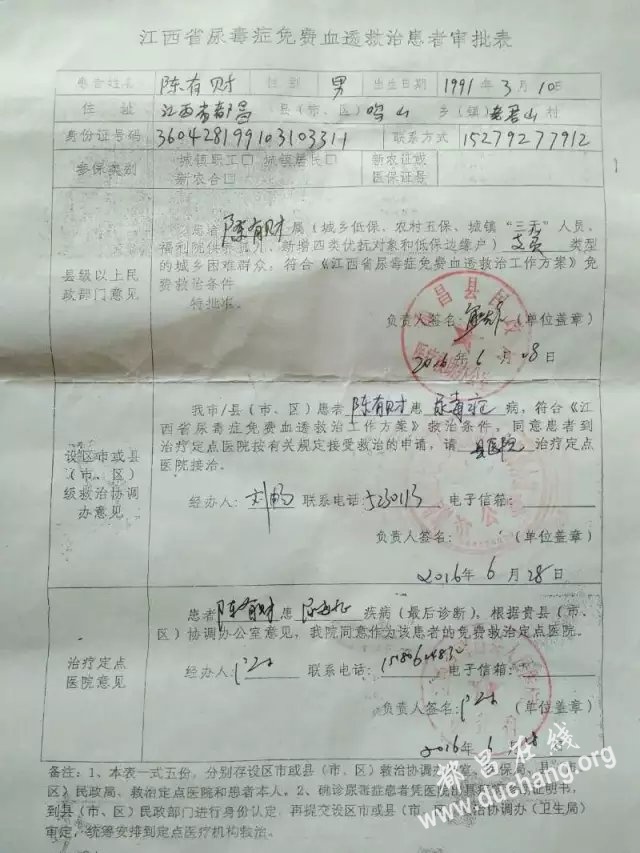 江西省尿毒症免费血透救治患者审批表
患者姓名 陈有财 性别 男 出生日期 1991年3月10日
住址 江西省都昌县(市、区)鸣山乡(镇)老君山村
身份证号码 360428199103103311 联系方式 15279277912
参保类别 城镇职工口 城镇居民口 新农合口 新农证或医保证号
县级以上民政部门意见
患者陈有财属(城乡低保、农村五保、城镇“三无”人员、
福利院供养、新增四类优抚对象和低保边缘户) 类型
的城乡困难群众,符合《江西省尿毒症免费血透救治工作方案》免
费救治条件
特批准。
负责人签名: (单位盖章)
2016年6月28日
设区市或县(市、区)级救治协调办意见
我市/县(市、区)患者陈有财患尿毒症病,符合《江
西省尿毒症免费血透救治工作方案》救治条件,同意患者到
治疗定点医院按有关规定接受救治的申请,请县医院治疗定点
医院接治。
经办人: 联系电话:5230113 电子信箱:
负责人签名: (单位盖章)
2016年6月28日
治疗定点医院意见
患者陈有财患尿毒症疾病(最后诊断),根据贵县(市、
区)协调办公室意见,我院同意作为该患者的免费救治定点医院。
经办人: 联系电话: 电子信箱:
负责人签名: (单位盖章)
2016年6月 日
备注:1、本表一式五份,分别存设区市或县(市、区)救治协调办公室、医保局、县(市、
区)民政局、救治定点医院和患者本人。2、确诊尿毒症患者凭医院出具 证明书,
到县(市、区)民政部门进行身份认定,再提交设区市或县(市、区) 治协调办(卫生局)
审定,统筹安排到定点医疗机构救治。
都昌在线
www.duchang.org